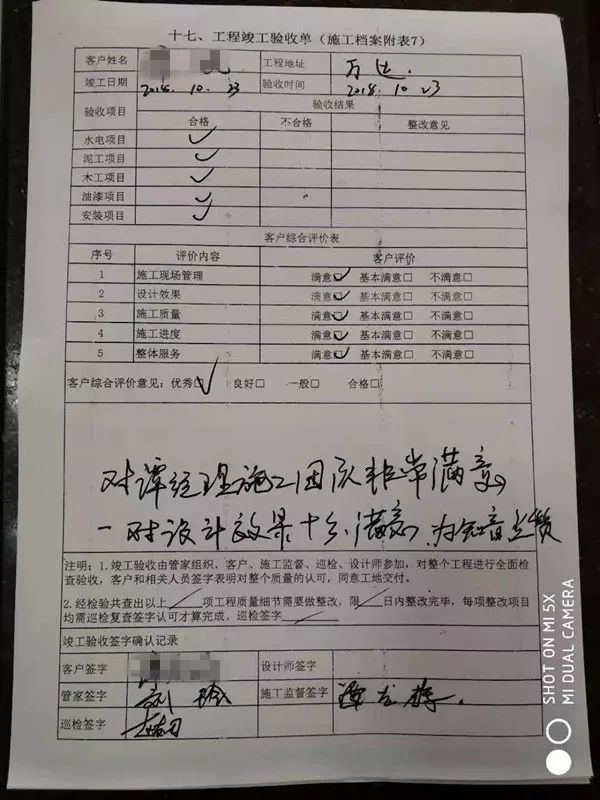 十七、工程竣工验收单（施工档案附表7）
客户姓名 工程地址 万达
竣工日期 2018.10.23 验收时间 2018.10.23
验收项目 验收结果
合格 不合格 整改意见
水电项目 ✓
泥工项目 ✓
木工项目 ✓
油漆项目 ✓
安装项目 ✓
客户综合评价表
序号 评价内容 客户评价
1 施工现场管理 满意☑ 基本满意□ 不满意□
2 设计效果 满意☑ 基本满意□ 不满意□
3 施工质量 满意☑ 基本满意□ 不满意□
4 施工进度 满意☑ 基本满意□ 不满意□
5 整体服务 满意☑ 基本满意□ 不满意□
客户综合评价意见：优秀☑ 良好□ 一般□ 合格□
对谭经理施工团队非常满意，
对设计效果十分满意，为知音点赞
注明：1.竣工验收由管家组织，客户、施工监督、巡检、设计师参加，对整个工程进行全面检
查验收，客户和相关人员签字表明对整个质量的认可，同意工地交付。
2.经检验共查出以上 / 项工程质量细节需要做整改，限 / 日内整改完毕，每项整改项目
均需巡检复查签字认可才算完成，巡检签字 /
竣工验收签字确认记录
客户签字 设计师签字
管家签字 施工监督签字 谭
巡检签字
SHOT ON MI 5X
MI DUAL CAMERA